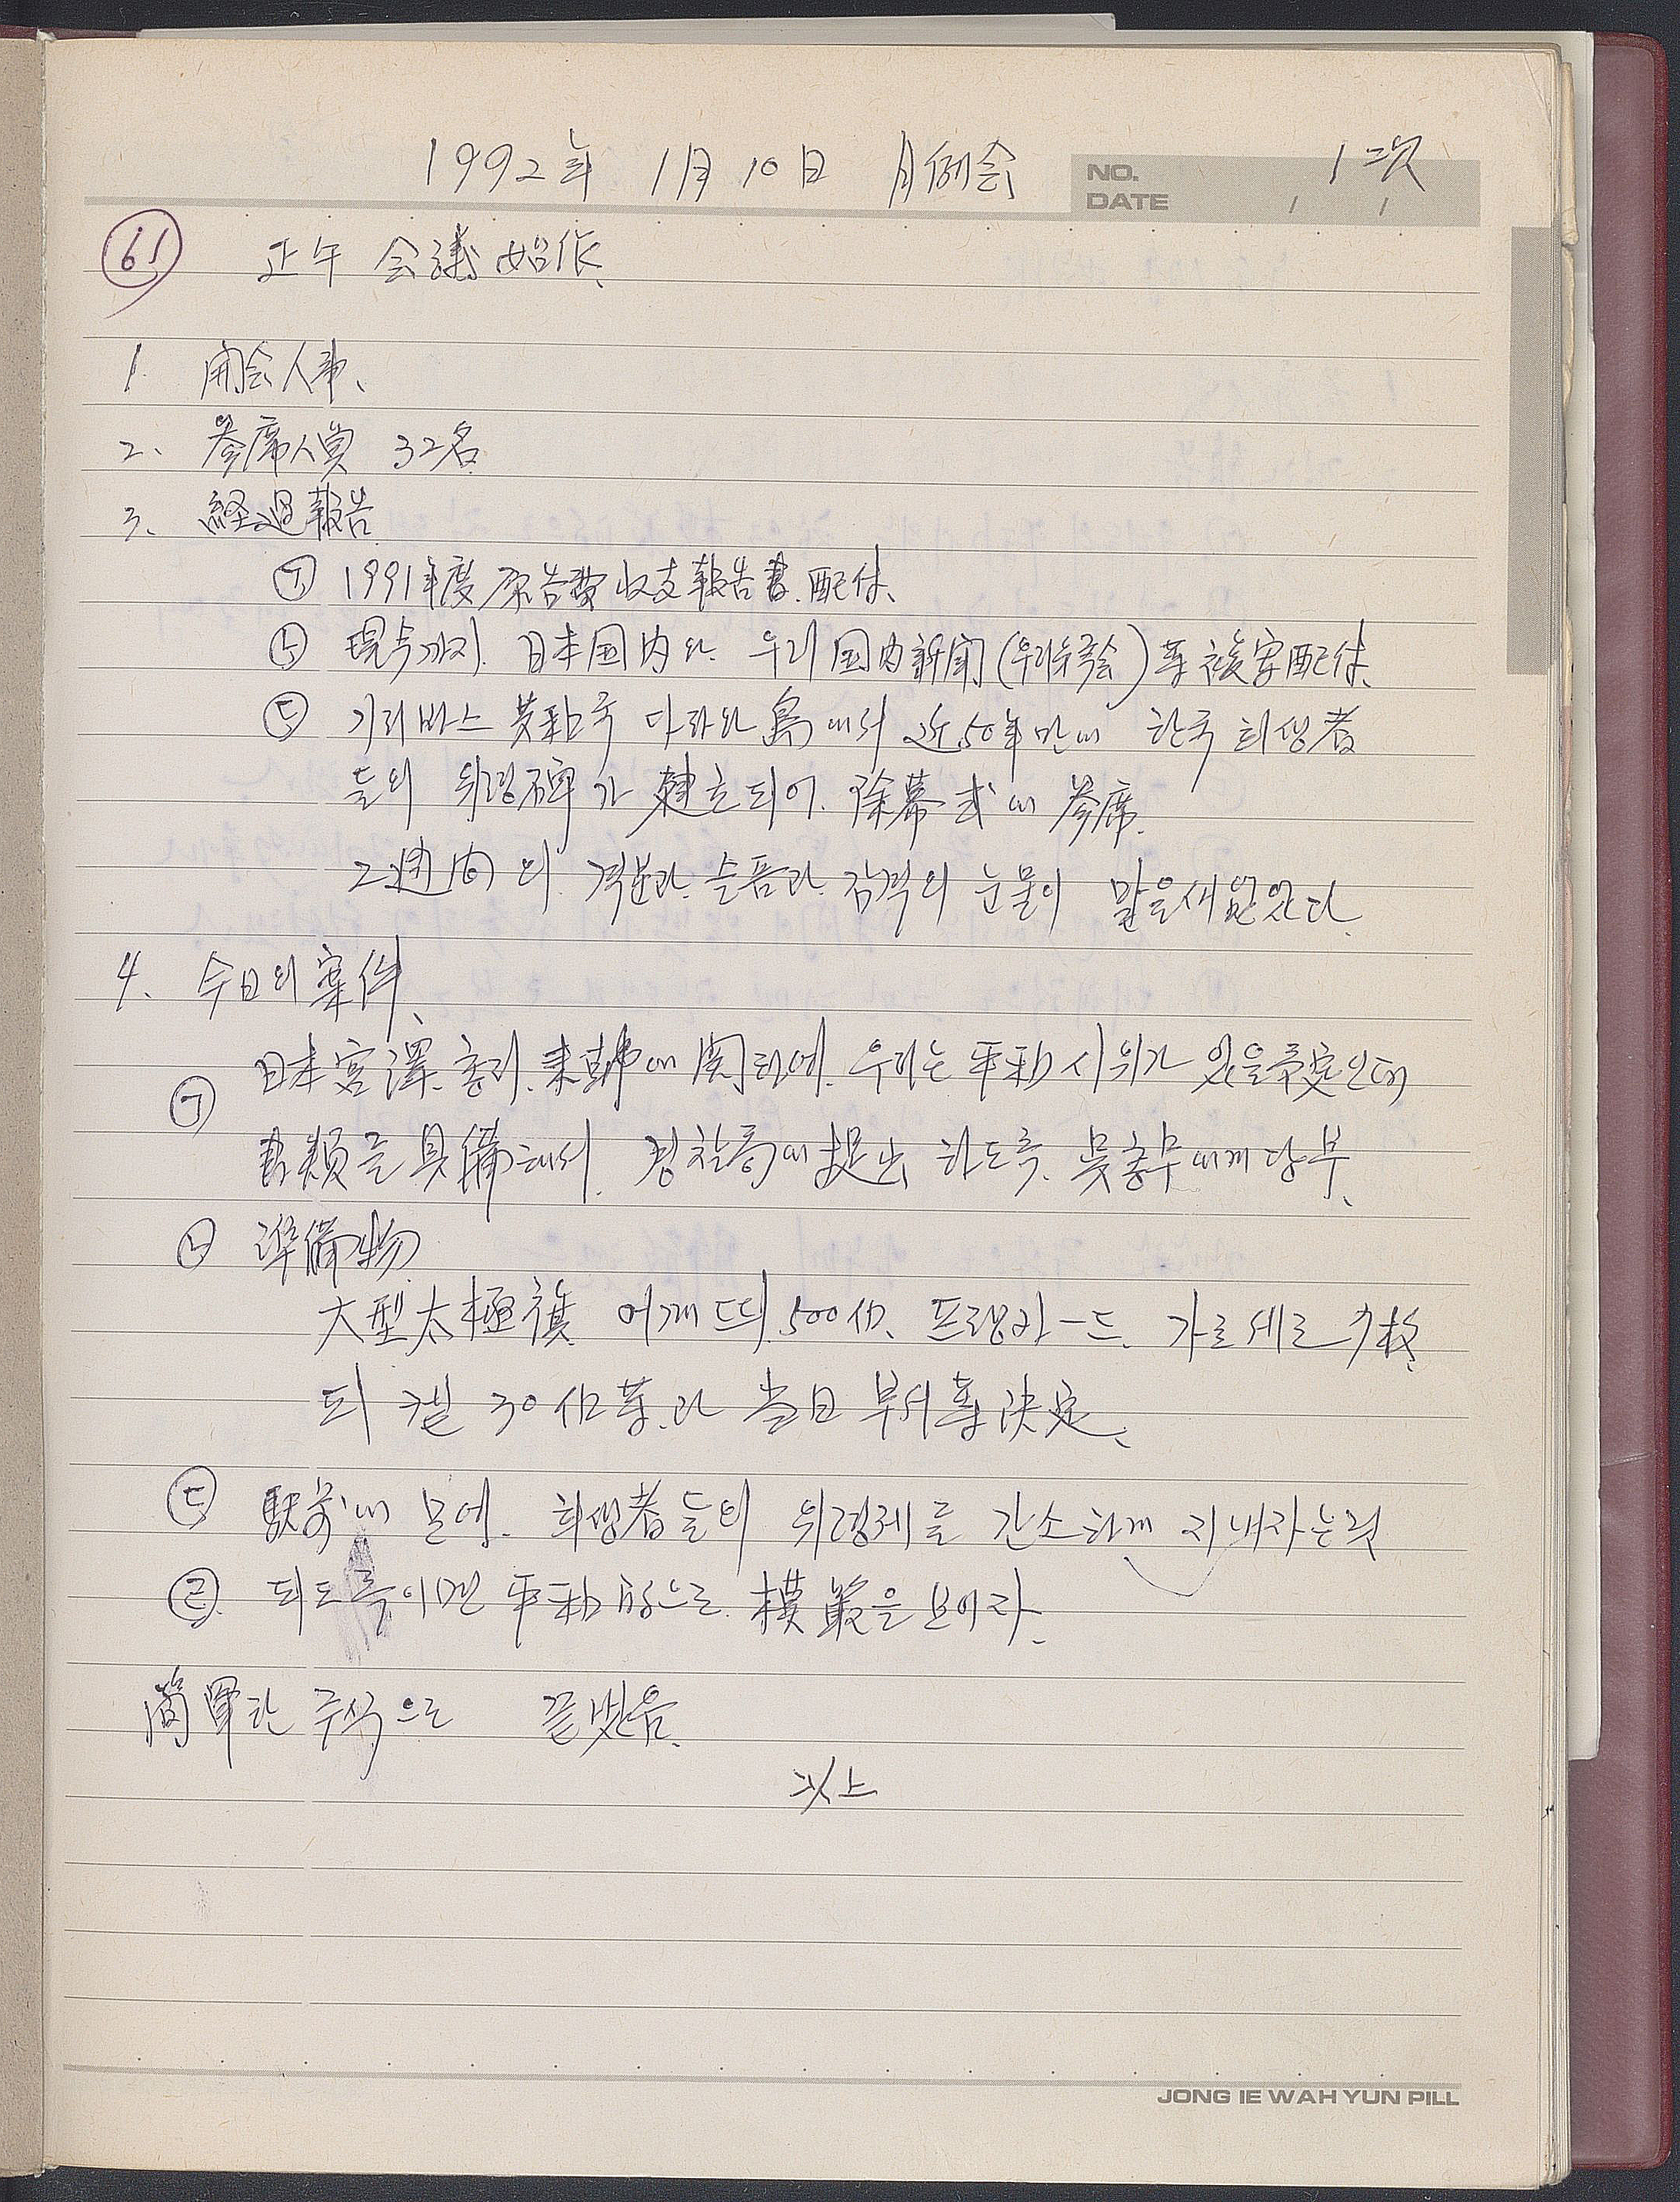 1992年 1月 10日 月例会 1次
NO.
DATE / /
61 正午 会議 始作、
1. 開会人事、
2、 参席人員 32名
3、 経過報告
㉠ 1991年度 原告費 收支 報告書. 配付、
㉡ 現在까지. 日本国内와. 우리国内新聞(우리유족会)等 複写配付、
㉢ 기리바스 共和국 다라와 島에서 近50年만에 한국 희생者
들의 위령碑가 建立되어. 除幕式에 参席.
2週间의. 격분과. 슬픔과. 감격의 눈물이 말을새없었다.
4、 今日의 案件、
㉠ 日本宮澤. 총리. 来韓에 関하여. 우리는 平和시위가 있을予定인데
書類를 具備해서. 경찰국에 提出 하도록. 吳총무에게 당부、
㉡ 準備物
大型太極旗 어깨띠. 500개. 프랭카ー드. 가로세로 枚、
피켙 30개等.과 当日 부서等 決定、
㉢ 駅前에 모여. 희생者들의 위령제를 간소하게 지내자는것
㉣. 되도록이면 平和的으로. 模範을 보이자、
簡單한 주식으로 끝냈음.
以上
JONG IE WAH YUN PILL